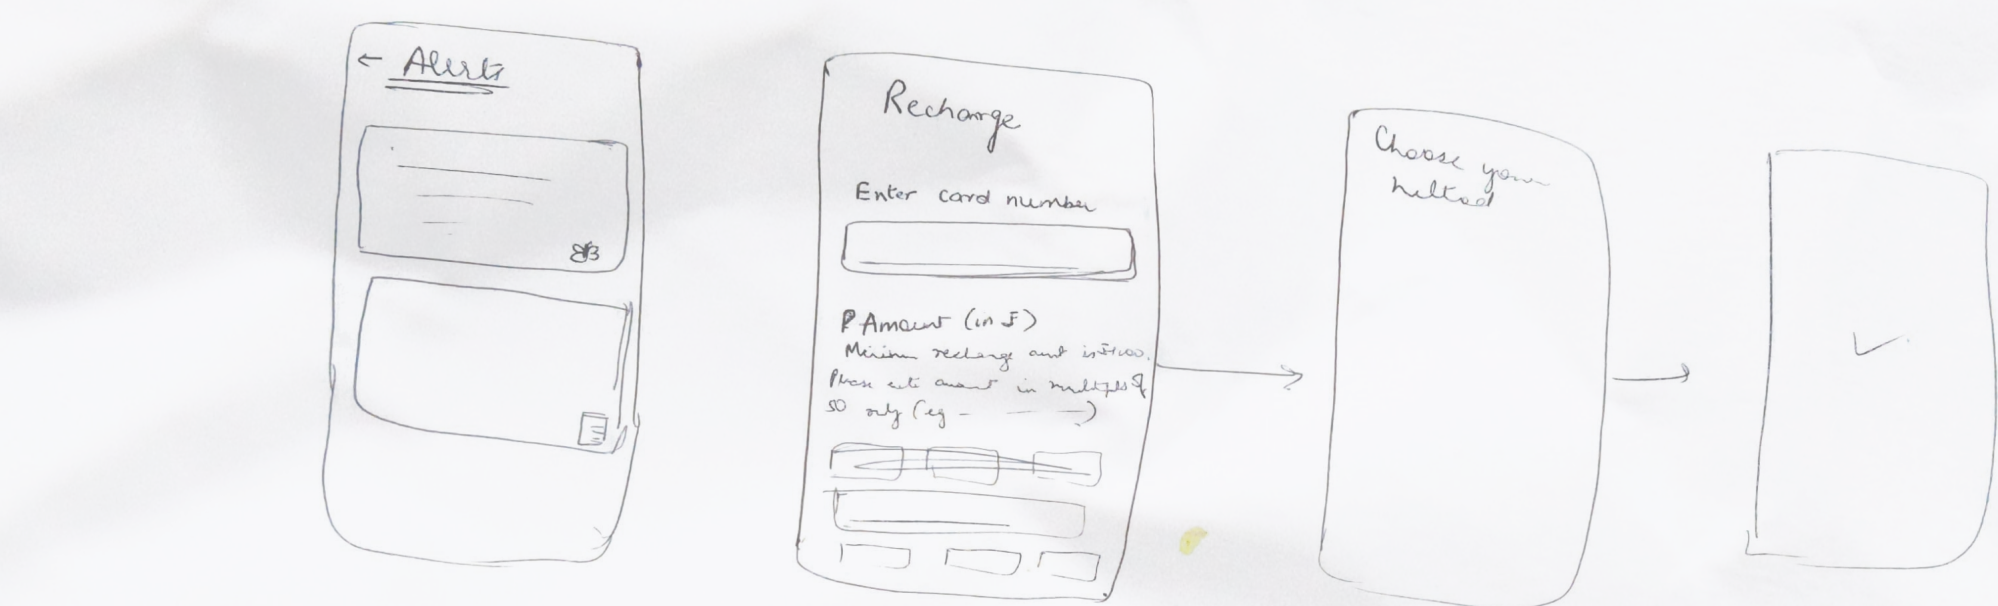 ← Alerts
Recharge
Enter card number
Amount (in ₹)
Minimum recharge amt is ₹
Please ente amount in multiples of
50 only (eg - )
Choose your